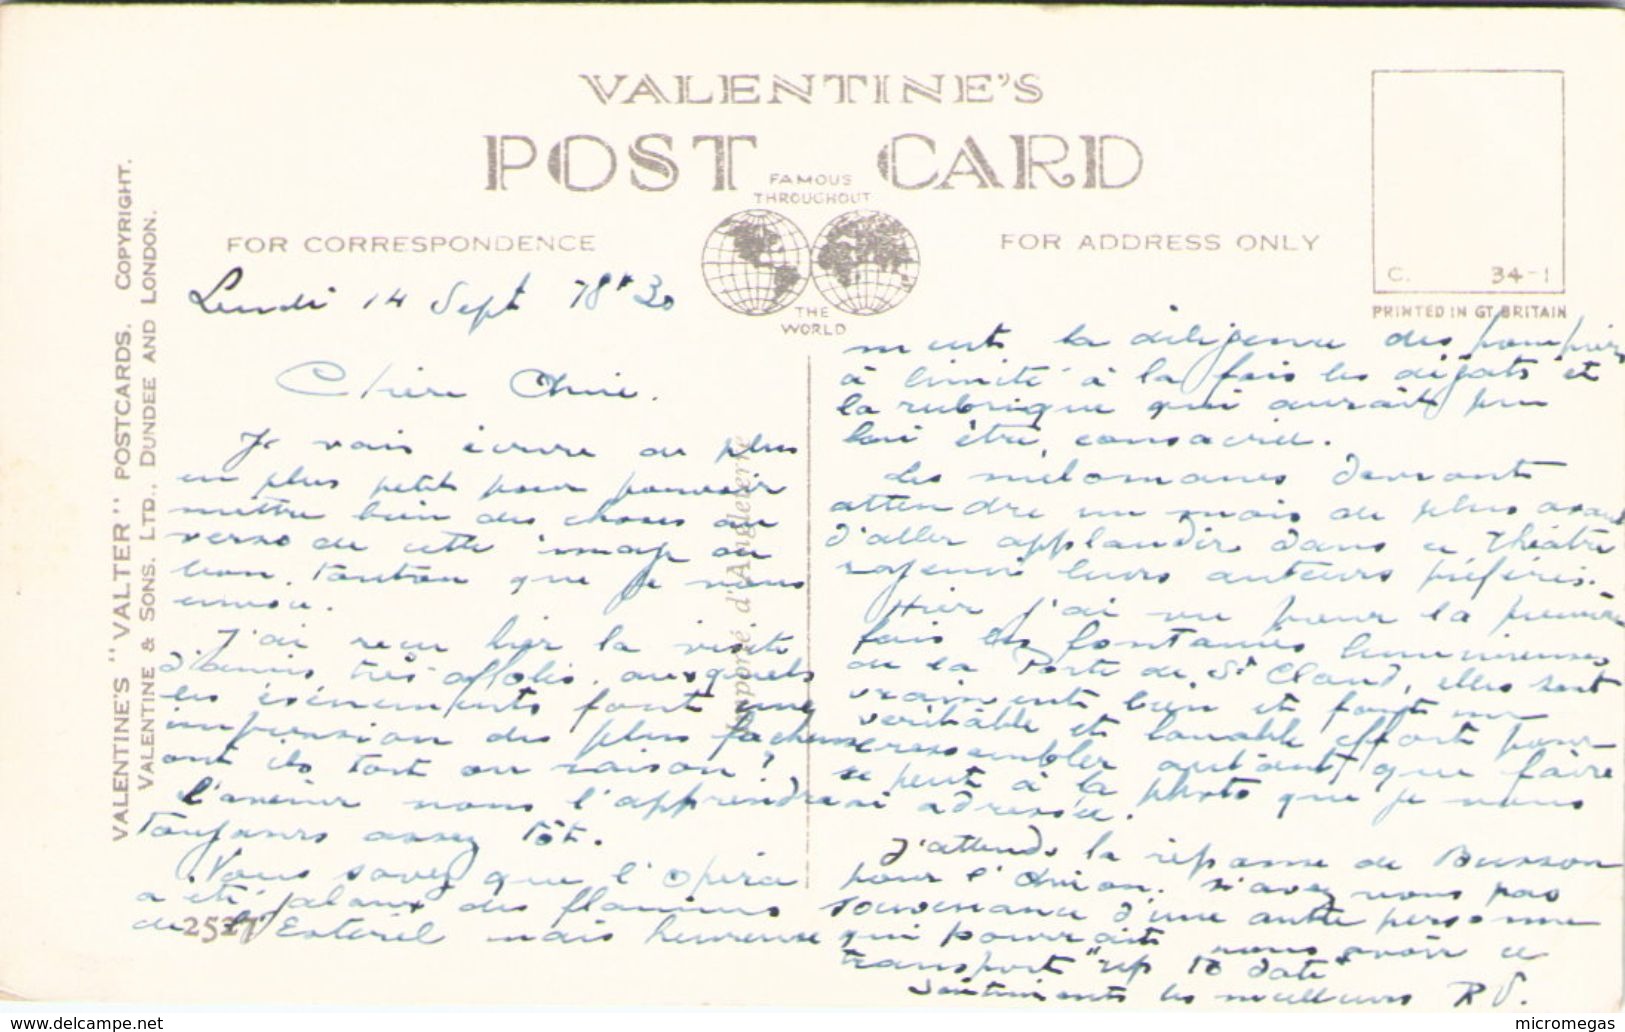 VALENTINE'S
POST CARD
FAMOUS
THROUGHOUT
THE
WORLD
FOR CORRESPONDENCE
FOR ADDRESS ONLY
C. 34-1
PRINTED IN GT BRITAIN
VALENTINE'S "VALTER" POSTCARDS. COPYRIGHT.
VALENTINE & SONS. LTD., DUNDEE AND LONDON.
Importé d'Angleterre
2527
Lundi 14 Sept 18h30
Chère Amie.
Je vais écrire de plus
en plus petit pour pouvoir
mettre bien des choses au
verso de cette image du
lion. Toutou que je vous
envoie.
J'ai reçu hier la visite
d'amis très affolés, auxquels
les événements font une
impression des plus fâcheuse
ont ils tort ou raison?
l'avenir nous l'apprendra
toujours assez tôt.
Vous savez que l'Opéra
a été jaloux des flammes
de l'Esterel mais heureuse
ment la diligence des pompiers
a limité à la fois les dégats et
la rubrique qui aurait pu
lui être consacrée.
Les mélomanes devront
attendre un mois de plus avant
d'aller applaudir dans ce théâtre
rajeuni leurs auteurs préférés.
Hier j'ai vu pour la première
fois les fontaines lumineuses
de la Porte de St Cloud, elles sont
vraiment bien et font un
véritable et louable effort pour
ressembler autant que faire
se peut à la photo que je vous
ai adressée.
J'attends la réponse de Busson
pour l'Union. N'avez vous pas
souvenance d'une autre personne
qui pourrait nous avoir ce
transport "up to date"
Sentiments les meilleurs R V.
micromegas
www.delcampe.net